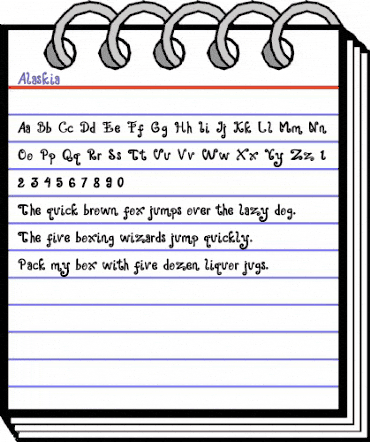 Alaskia
Aa Bb Cc Dd Ee Ff Gg Hh Ii Jj Kk Ll Mm Nn
Oo Pp Qq Rr Ss Tt Uu Vv Ww Xx Yy Zz 1
2 3 4 5 6 7 8 9 0
The quick brown fox jumps over the lazy dog.
The five boxing wizards jump quickly.
Pack my box with five dozen liquor jugs.